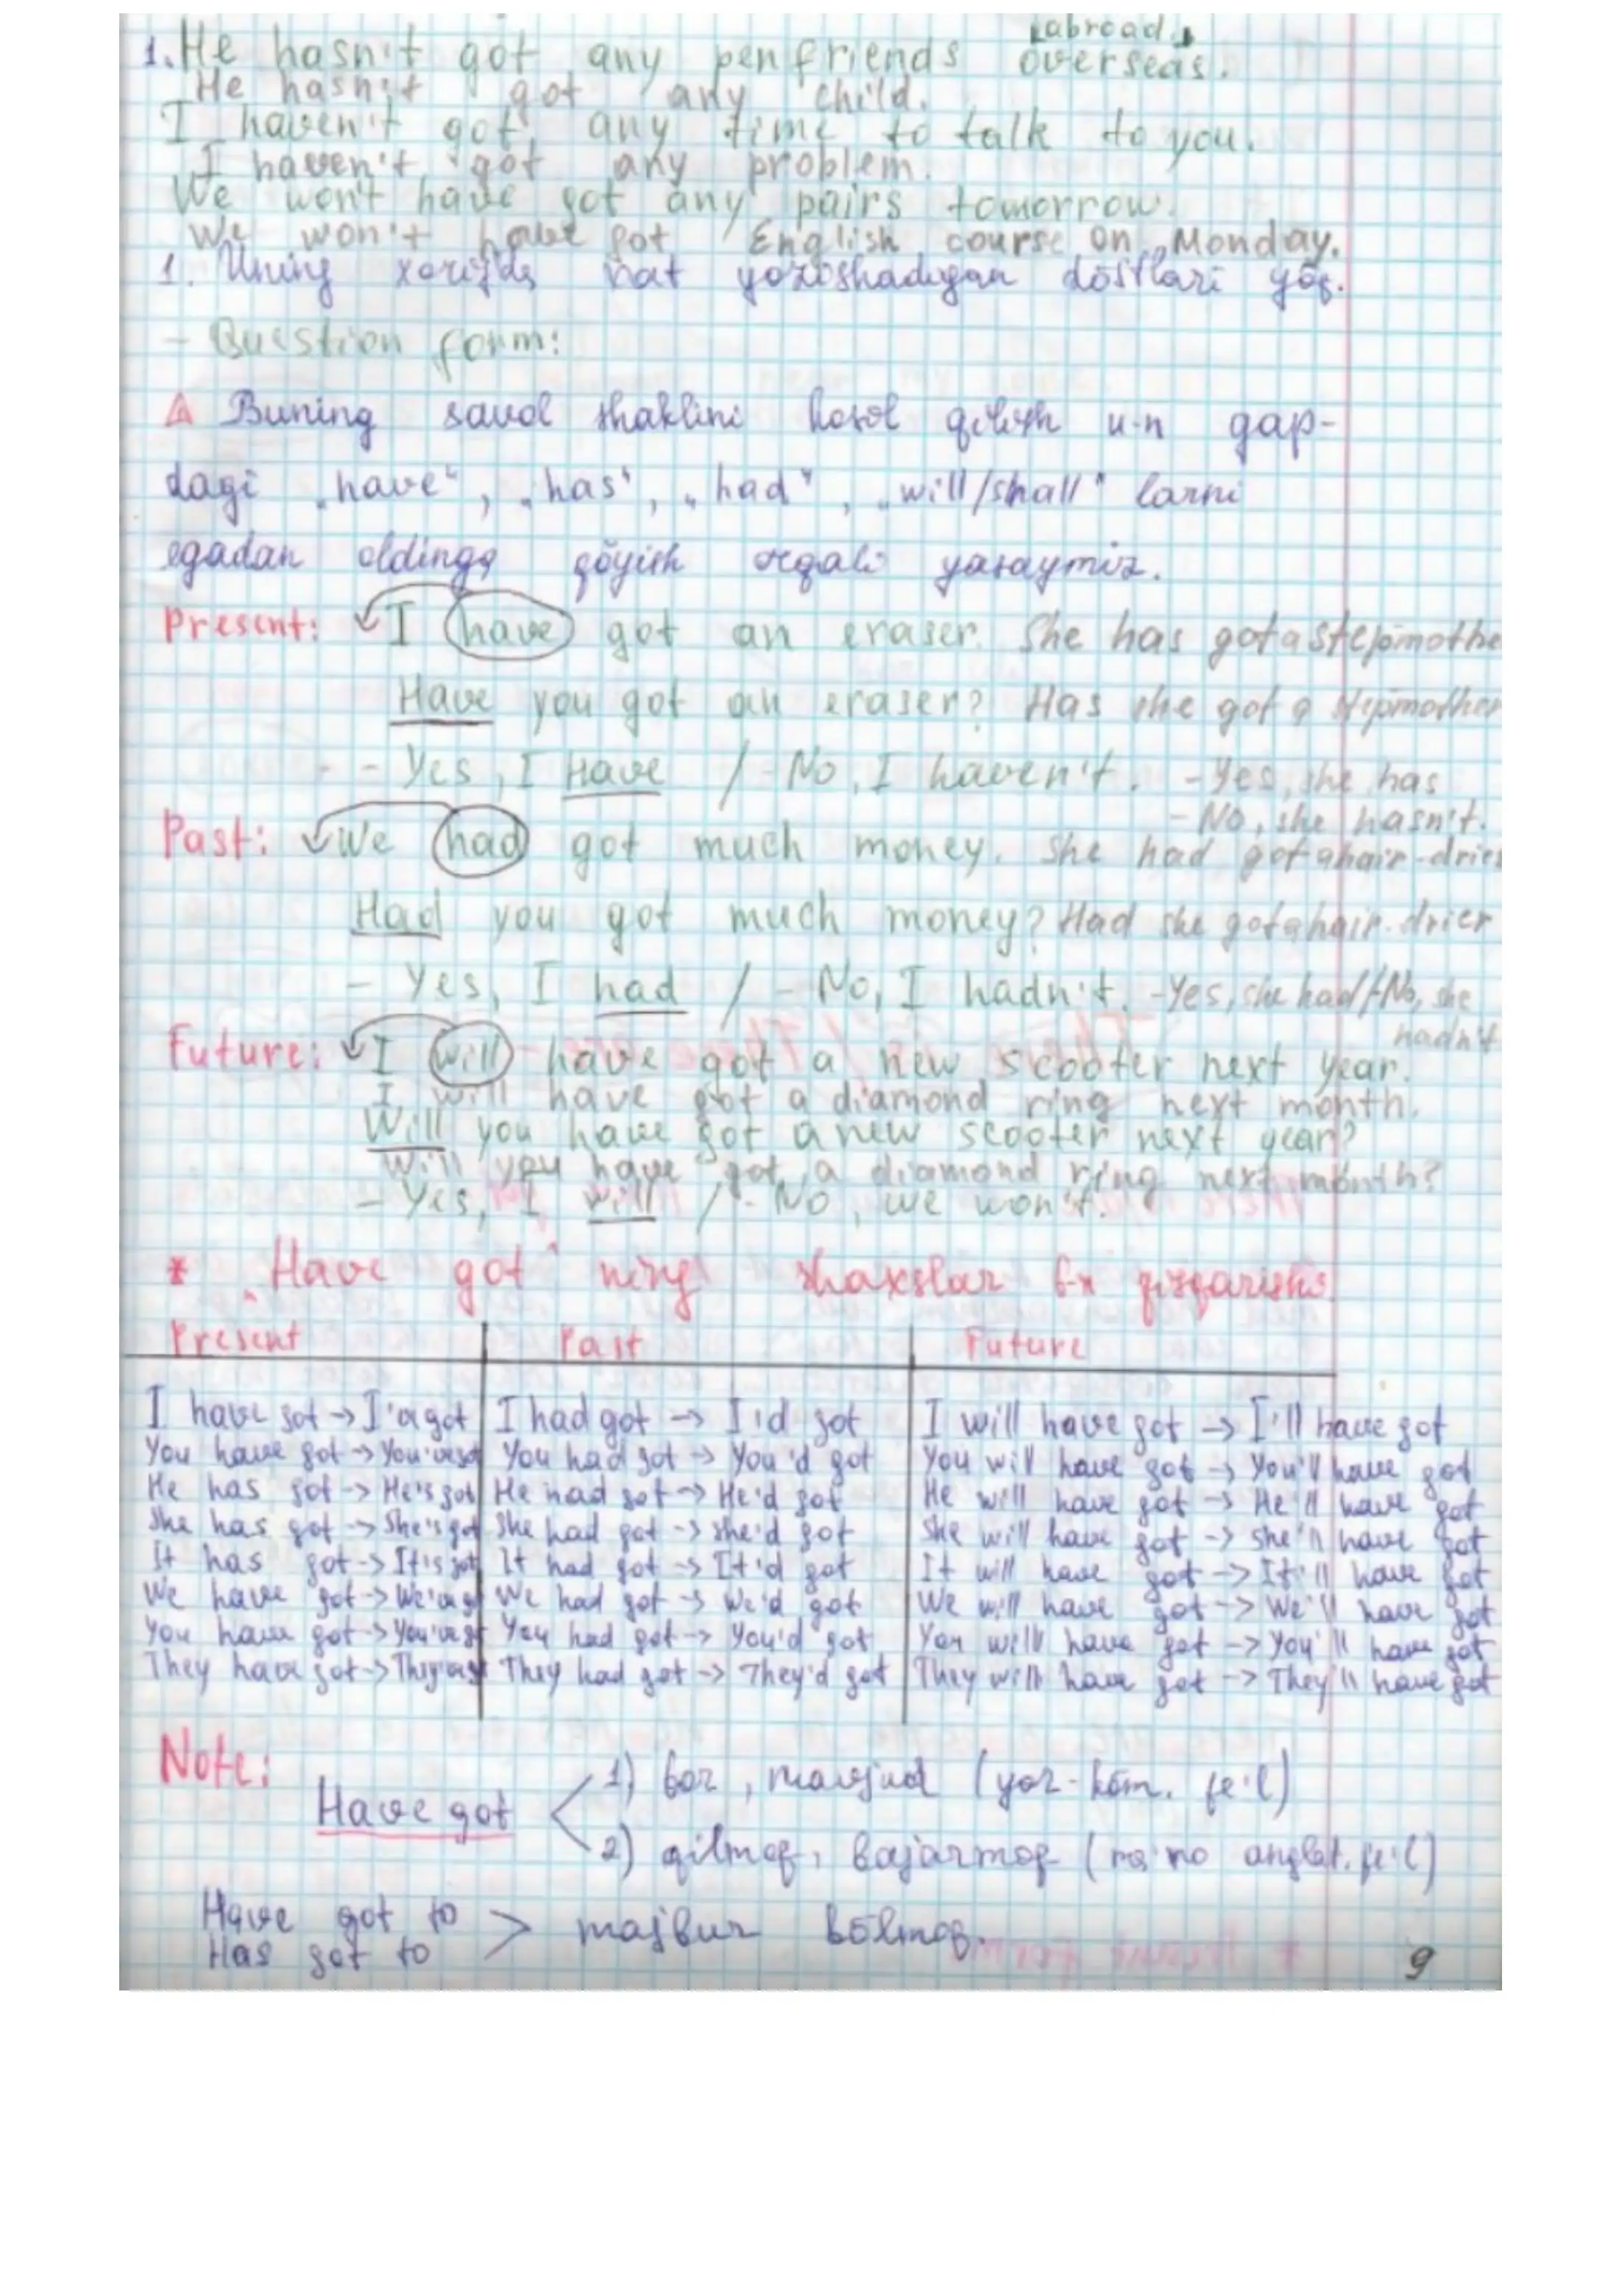 [abroad]
1. He hasn't got any penfriends overseas.
He hasn't got any child.
I haven't got any time to talk to you.
I haven't got any problem.
We won't have got any pairs tomorrow.
We won't have got English course on Monday.
1. Uning xorijda xat yozishadigan dōstlari yōq.
- Question form:
Buning savol shaklini hosil qilish u-n gap-
dagi „have“, „has“, „had“, „will/shall“ larni
egadan oldinga qōyish orqali yasaymiz.
Present: I have got an eraser. She has got a stepmothe
Have you got an eraser? Has she got a stepmother
- Yes, I have / - No, I haven't. - Yes, she has
- No, she hasn't.
Past: We had got much money. She had got a hair-drier
Had you got much money? Had she got a hair-drier
- Yes, I had / - No, I hadn't. - Yes, she had/-No, she
hadn't
Future: I will have got a new scooter next year.
I will have got a diamond ring next month.
Will you have got a new scooter next year?
Will you have got a diamond ring next month?
- Yes, I will / - No, we won't.
* „Have got“ ning shaxslar b-n
Present Past Future
I have got → I've got I had got → I'd got I will have got → I'll have got
You have got → You've got You had got → You'd got You will have got → You'll have got
He has got → He's got He had got → He'd got He will have got → He'll have got
She has got → She's got She had got → She'd got She will have got → She'll have got
It has got → It's got It had got → It'd got It will have got → It'll have got
We have got → We've got We had got → We'd got We will have got → We'll have got
You have got → You've got You had got → You'd got You will have got → You'll have got
They have got → They've got They had got → They'd got They will have got → They'll have got
Note:
1) bor, mavjud (yor-kōm. fe'l)
Have got
2) qilmoq, bajarmoq (ma'no anglat. fe'l)
Have got to
Has got to > majbur bōlmoq.
9